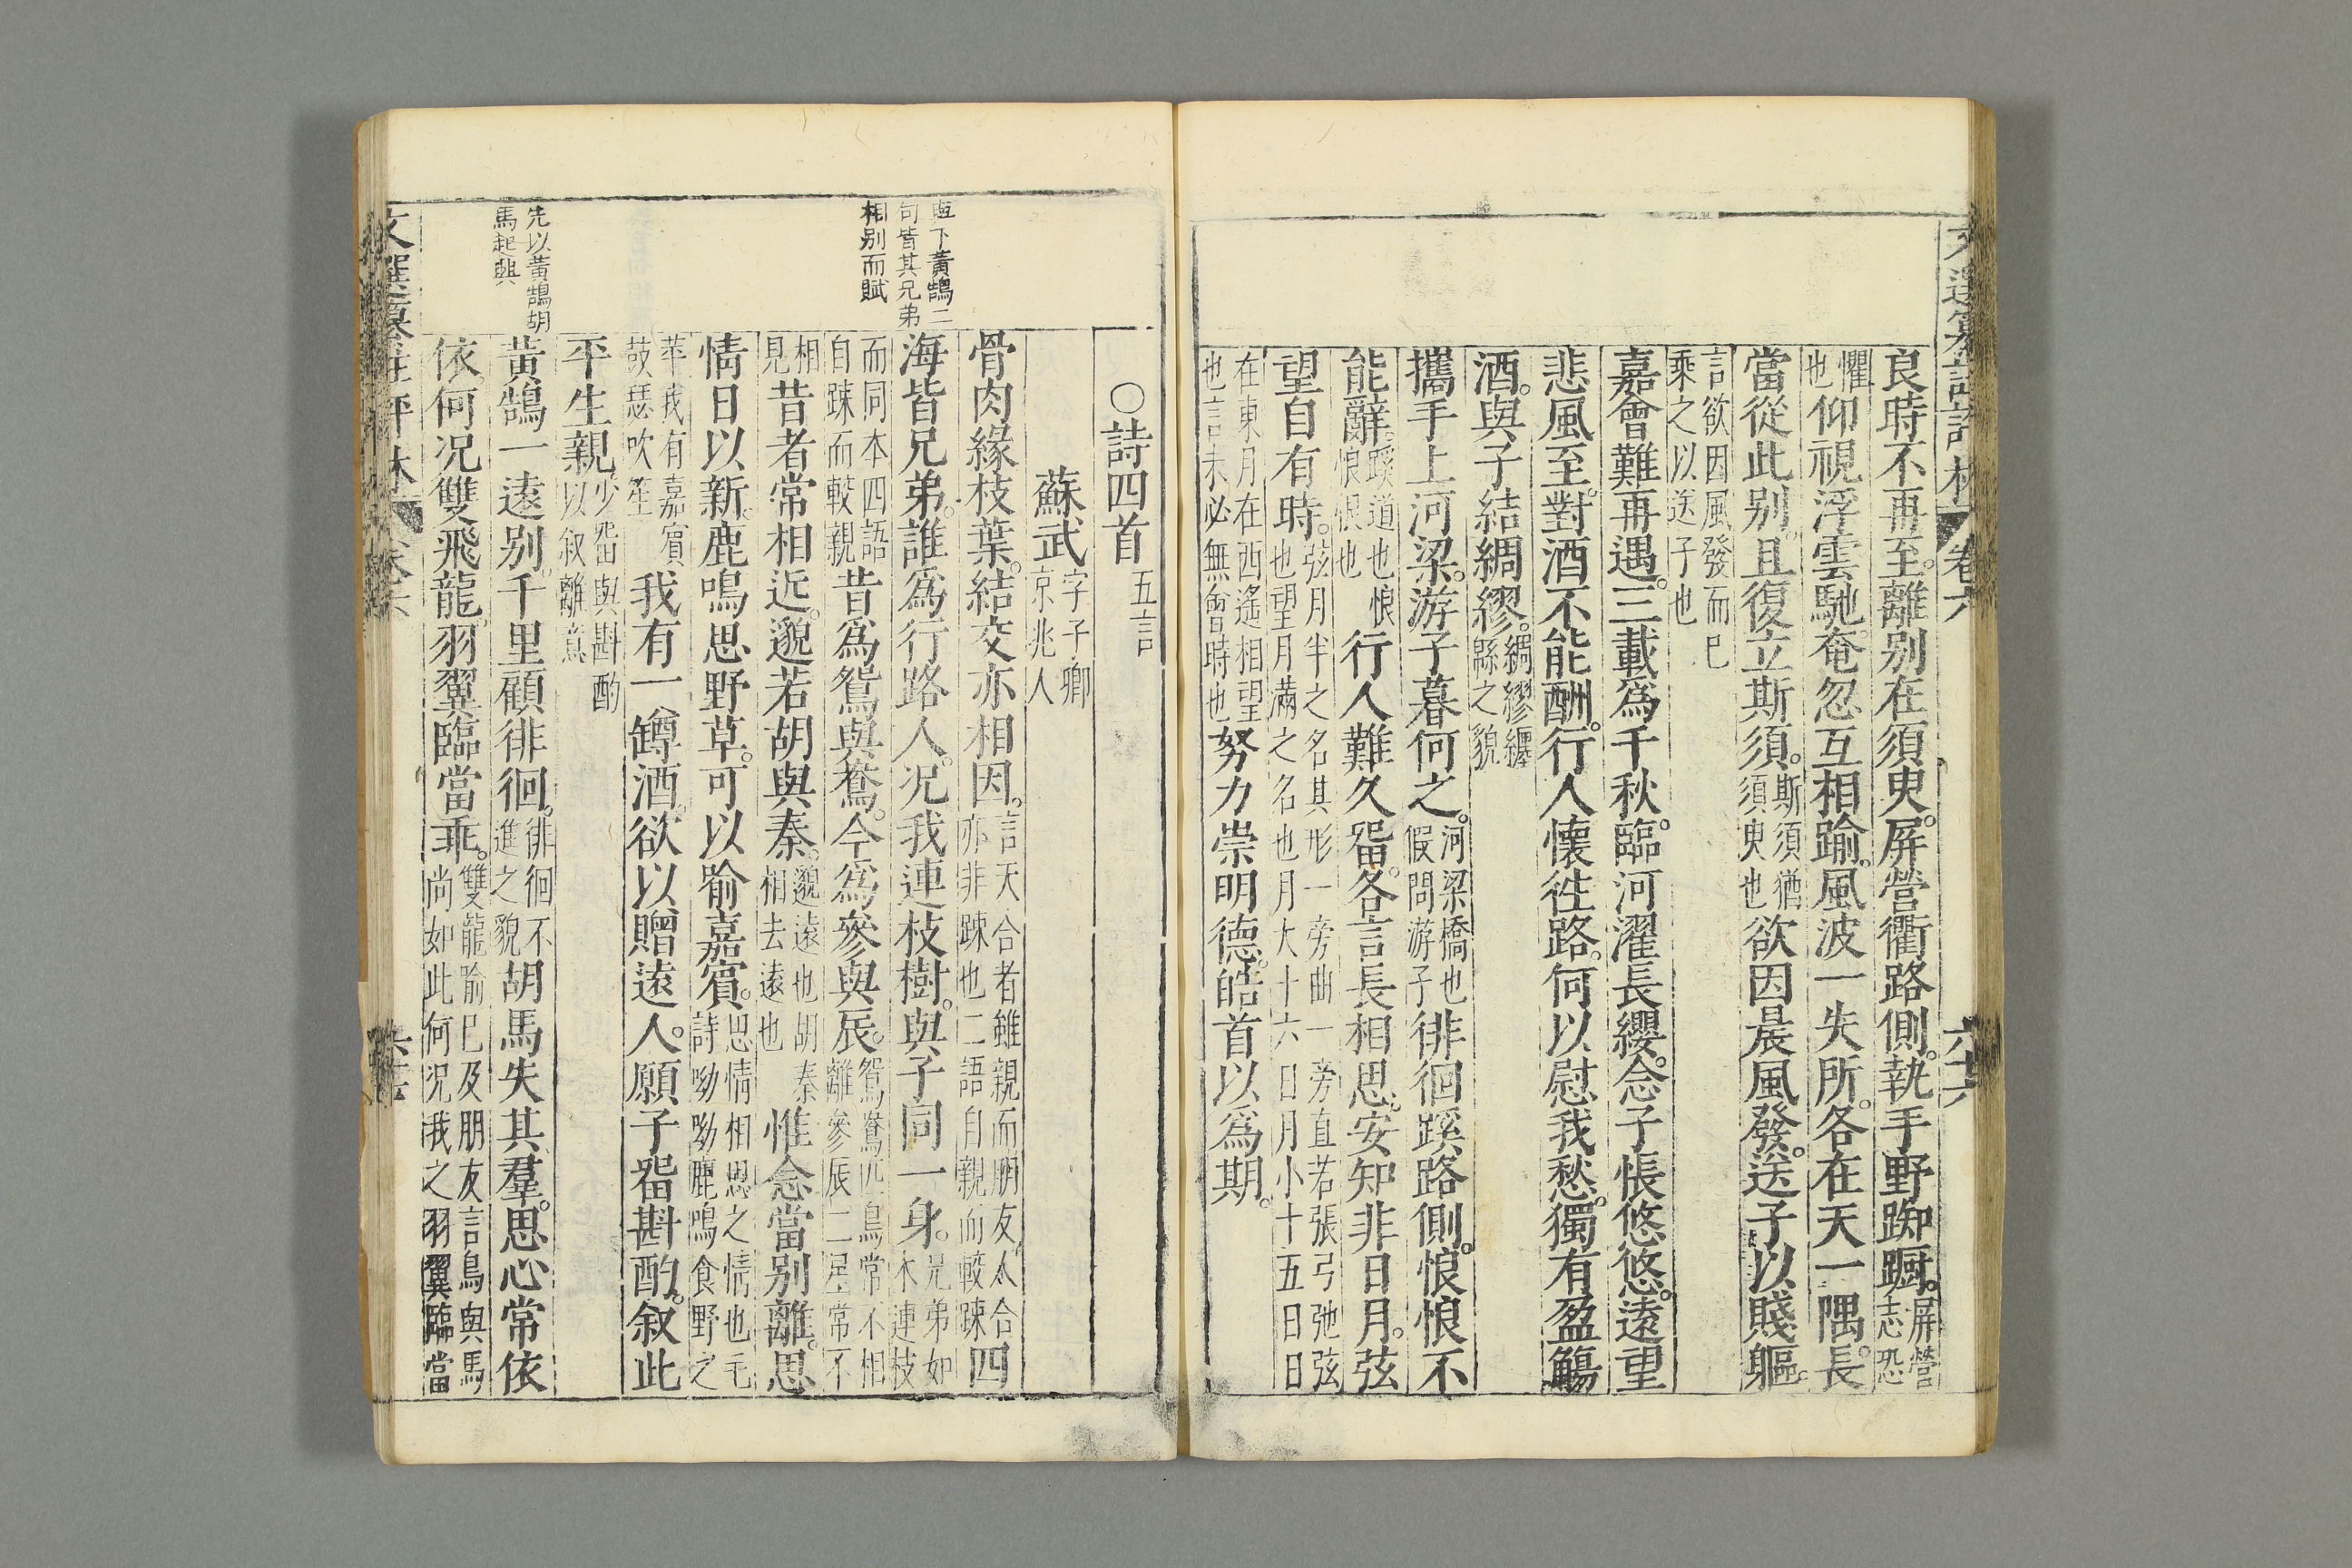 良時不再至。離别在須臾。屏營衢路側。執手野踟蹰。屏營志恐
懼也仰視浮雲馳。奄忽互相踰。風波一失所。各在天一隅。長
當從此别。且復立斯須。斯須猶須臾也欲因晨風發。送子以賤軀。
言欲因風發而巳乘之以送子也
嘉會難再遇。三載爲千秋。臨河濯長纓。念子悵悠悠。遠望
悲風至。對酒不能酬。行人懷徃路。何以慰我愁。獨有盈觴
酒。與子結綢繆。綢繆纏緜之貌
攜手上河梁。游子暮何之。河梁橋也假問游子徘徊蹊路側。悢悢不
能辭。蹊道也悢悢恨也行人難久畱。各言長相思。安知非日月。弦
望自有時。弦月半之名其形一旁曲一旁直若張弓弛弦也望月滿之名也月大十六日月小十五日日
在東月在西遙相望也言未必無會時也努力崇明德。皓首以爲期。
文選纂註評林
卷六
六十六
○詩四首五言
蘇武字子卿京兆人
骨肉緣枝葉。結交亦相因。言天合者雖親而朋友人合亦非踈也二語自親而較踈四
海皆兄弟。誰爲行路人。况我連枝樹。與子同一身。兄弟如木連枝
而同本四語自踈而較親昔爲鴛與鴦。今爲參與辰。鴛鴦匹鳥常不相離參辰二星常不
相見昔者常相近。邈若胡與秦。邈遠也胡秦相去遠也惟念當别離。思
情日以新。鹿鳴思野草。可以喻嘉賓。思情相思之情也毛詩呦呦鹿鳴食野之
苹我有嘉賓鼓瑟吹笙我有一罇酒。欲以贈遠人。願子畱斟酌。叙此
平生親。少畱與斟酌以叙離意
黄鵠一遠别。千里顧徘徊。徘徊不進之貌胡馬失其羣。思心常依
依。何况雙飛龍。羽翼臨當乖。雙龍喻巳及朋友言鳥與馬尚如此何况我之羽翼臨當
與下黄鵠二
句皆其兄弟
相别而賦
先以黄鵠胡
馬起興
文選纂註評林